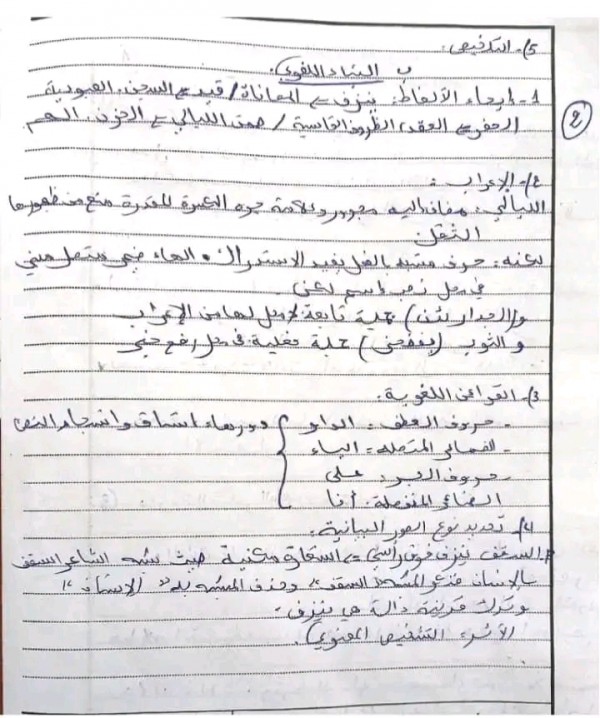 5/- التلخيص:
ب البناء اللغوي:
1- إيحاء الألفاظ: ينزف => المعاناة / قيد => السجن، العبودية
الحفر => العقد، الظروف القاسية / صمت الليالي => الحزن، الهم
2
2/- الإعراب:
الليالي: مضاف إليه مجرور وعلامة جره الكسرة المقدرة منع من ظهورها
الثقل
لكنه: حرف مشبه بالفعل يفيد الاستدراك، الهاء ضمير متصل مبني
في محل نصب اسم لكن.
و(الجدار يئن) جملة تابعة لا محل لها من الإعراب
و الثوب ( ) جملة فعلية في محل رفع خبر
3/- القرائن اللغوية:
- حروف العطف: الواو } دورها اتساق وانسجام النص
- الضمائر المتصلة: الياء
- حروف الجر: على
الضمائر المنفصلة: أنا
4/- تحديد نوع الصور البيانية:
السقف ينزف فوق رأسي => استعارة مكنية حيث شبه الشاعر السقف
بالإنسان فذكر المشبه "السقف" وحذف المشبه به "الإنسان"
وترك قرينة دالة هي ينزف.
(الأثر: التشخيص المعنوي).